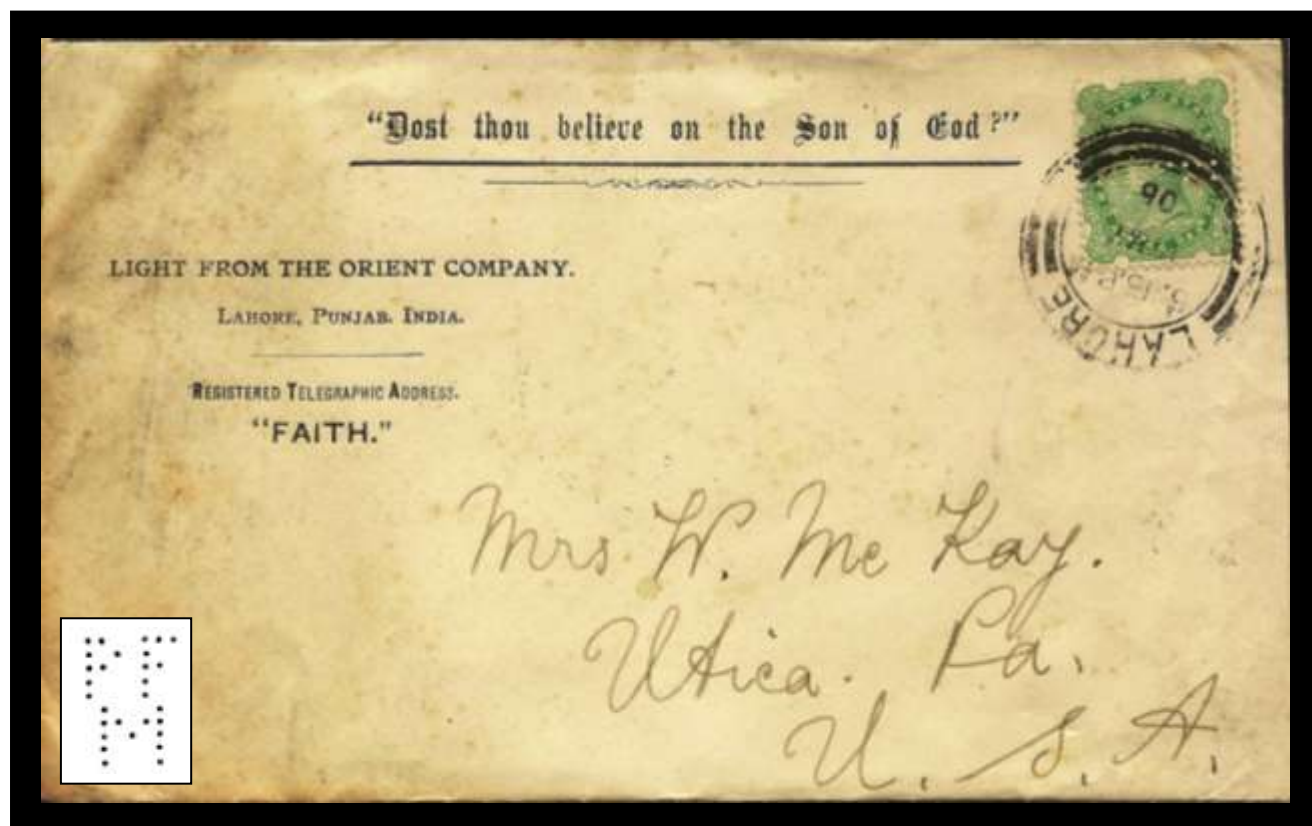 "Dost thou believe on the Son of God?"
LIGHT FROM THE ORIENT COMPANY.
LAHORE, PUNJAB. INDIA.
REGISTERED TELEGRAPHIC ADDRESS.
"FAITH."
LAHORE
06
Mrs W. McKay.
Utica. Pa.
U. S. A.
PF
M